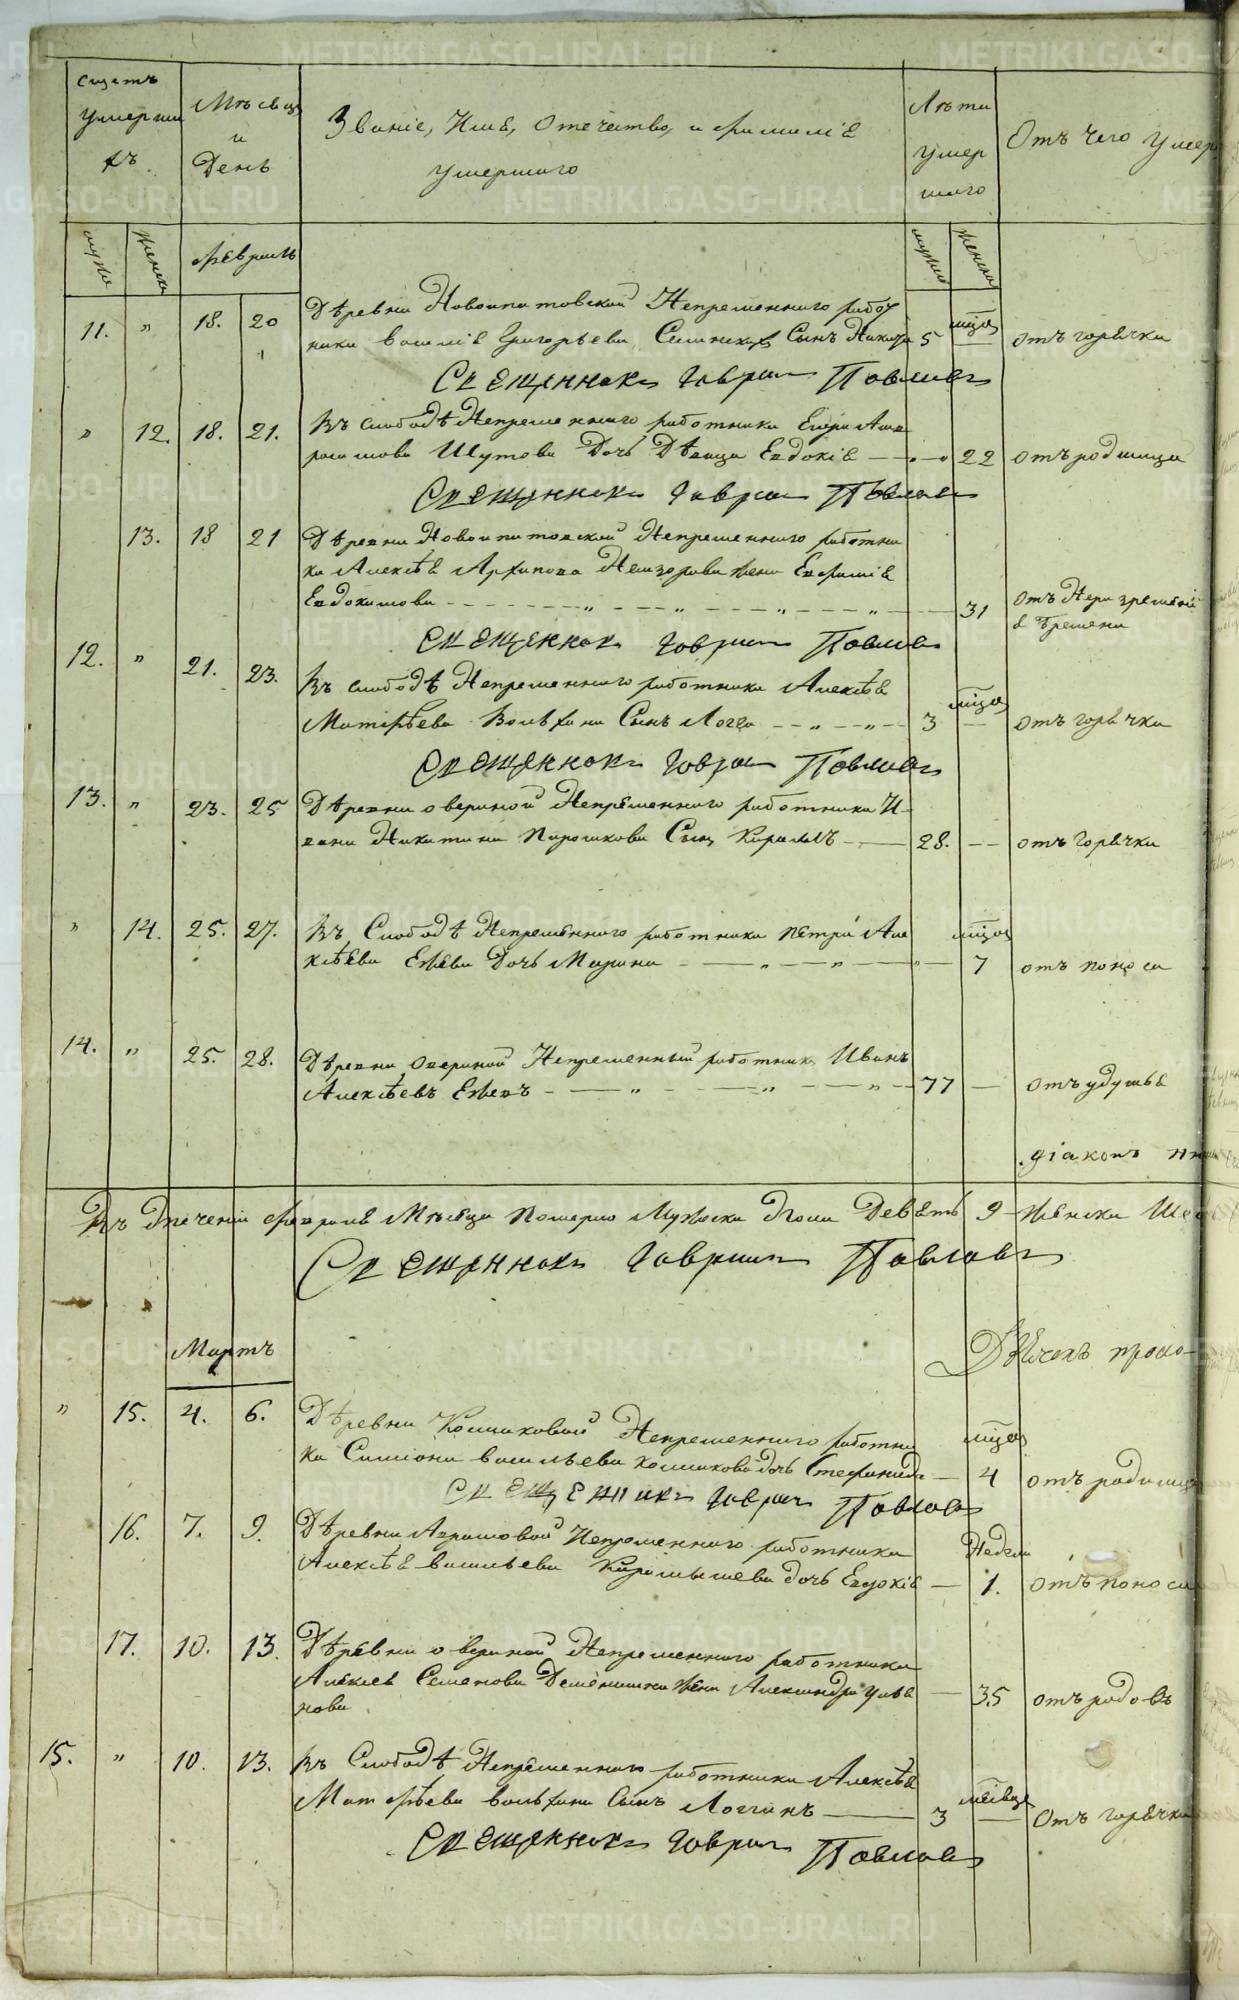 Щетъ умершихъ.
Мѣсяцъ и День
Званіе, Имя, Отечество, и Фамилія
умершаго
Лѣта умершаго
Отъ чего умер
мужс
женск
Февраль
мужск
женск
11. " 18. 20 Деревни Новоипатовской Непременнаго работ
ника Василія Григорьева Сынъ Никита 5 мцов отъ горячки
Священникъ Гавриилъ Павловъ
" 12. 18. 21. Въ слободѣ Непременнаго работника
Шутова Дочь Девица Евдокія 22 отъ родимца
Священникъ Гавриилъ Павловъ
13. 18 21 Деревни Новоипатовской Непременнаго работни
ка Алексѣя Архипова жена Евфимія
Евдокимова 31 отъ
бремени
Священникъ Гавриилъ Павловъ
12. " 21. 23. Въ слободѣ Непременнаго работника Алексѣя
Матвѣева Сынъ Логгв 3 мцов отъ горячки
Священникъ Гавриилъ Павловъ
13. " 23. 25 Деревни Овериной Непременнаго работника И-
вана Никитина Сынъ Кирилъ 28. отъ горячки
" 14. 25. 27. Въ Слободѣ Непременнаго работника Петра Але
ксѣева Ежева Дочь Марина 7 мцов отъ поноса
14. " 25. 28. Деревни Овериной Непременный работникъ Иванъ
Алексѣевъ Ежевъ 77 отъ удушья
діаконъ
Въ Февраля Мѣсяца Померло Мужеска пола Девять 9 Женска
Священникъ Гавриилъ Павловъ
Дьячекъ
Мартъ
" 15. 4. 6. Деревни Колпаковой Непременнаго работни
ка Симіона Васильева Колпакова дочь Стефанида 4 мцов отъ родимца
Священникъ Гавриилъ Павловъ
16. 7. 9. Деревни Абрамовой Непременнаго работника
Алексѣя Васильева дочь Евдокія Недели 1. отъ поноса
17. 10. 13. Деревни Овериной Непременнаго работника
Алексея Семенова жена Александра Улья
нова 35 отъ родовъ
15. " 10. 13. Въ Слободѣ Непременнаго работника Алексѣя
Матвѣева Сынъ Логгинъ 3 месяца отъ горячки
Священникъ Гавриилъ Павловъ
METRIKI.GASO-URAL.RU